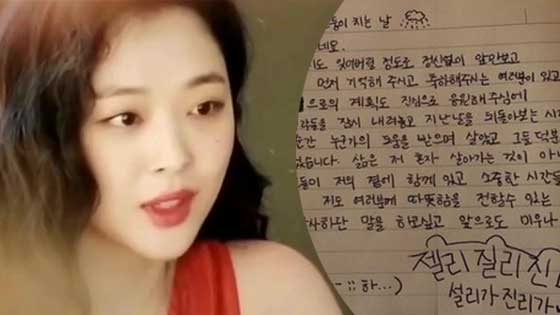 들이 지는 날
네요.
도 잊어버릴 정도로 정신없이 앞만보고
먼저 기억해 주시고 축하해주시는 여러분이 있고
으로의 계획도 진심으로 응원해 주심에
각들을 잠시 내려놓고 지난날을 되돌아보는 시
순간 누군가의 도움을 받으며 살았고 그들 덕분
었습니다. 삶은 저 혼자 살아가는 것이 아
들이 저의 곁에 함께 있고 소중한 시간들
저도 여러분께 따뜻함을 전할수 있는
사하단 말을 하고싶고 앞으로도 미우나
젤리 질리 진
설리가 진리가
;; 하...)